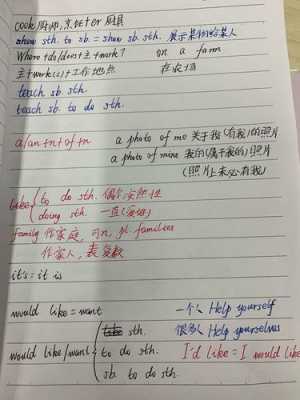 cook 厨师，烹饪er 厨具
show sth. to sb. = show sb. sth. 展示某物给某人
Where+do/does+主+work? on a farm
主+work(s)+工作地点 在农场
teach sb. sth.
teach sb. to do sth.
a/an+n+of+n a photo of me 关于我(有我)的照片
a photo of mine 我的(属于我的)照片
(照片上未必有我)
like to do sth. 偶尔
doing sth. 一直
family 作家庭，可n, pl. families
作家人，表复数
it's = it is
would like = want 一个人 Help yourself
sth. 很多人 Help yourselves
would like/want to do sth. I'd like = I would like
sb. to do sth.